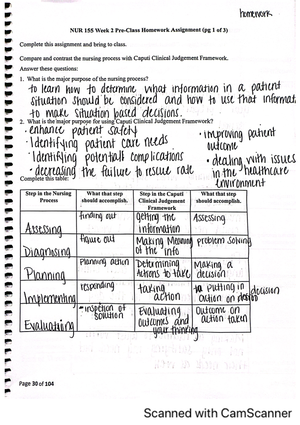 homework
NUR 155 Week 2 Pre-Class Homework Assignment (pg 1 of 3)
Complete this assignment and bring to class.
Compare and contrast the nursing process with Caputi Clinical Judgement Framework.
Answer these questions:
1. What is the major purpose of the nursing process?
to learn how to determine what information in a patient
situation should be considered and how to use that informat
to make situation based decisions.
2. What is the major purpose for using Caputi Clinical Judgement Framework?
• enhance patient safety
• Identifying patient care needs
• Identifying potentials complications
• decreasing the failure to rescue rate
• improving patient
outcome
• dealing with issues
in the healthcare
environment
Complete this table:
Step in the Nursing Process | What that step should accomplish. | Step in the Caputi Clinical Judgement Framework | What that step should accomplish.
Assessing | finding out | Getting the information | Assessing
Diagnosing | figure out | Making Meaning of the info | problem solving
Planning | Planning action | Determining Actions to take | Making a decision
Implementing | responding | taking action | putting in action on decision
Evaluating | inspection of solution | Evaluating outcomes and your thinking | Outcome on action taken
Page 30 of 104
Scanned with CamScanner